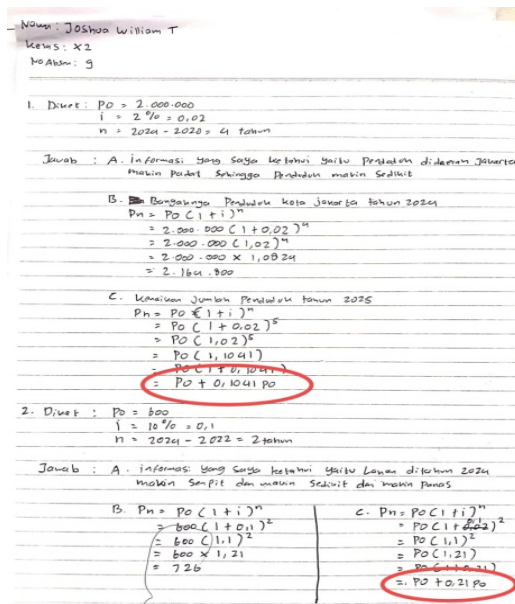 Nama : Joshua William T
Kelas : X2
No Absen : 9
1. Diket : Po = 2.000.000
i = 2% = 0,02
n = 2024 - 2020 = 4 tahun
Jawab : A. informasi yang saya ketahui yaitu Penduduk didaerah Jakarta
makin padat sehingga Penduduk makin sedikit
B. Banyaknya Penduduk kota jakarta tahun 2024
Pn = Po ( 1 + i )ⁿ
= 2.000.000 ( 1 + 0,02 )⁴
= 2.000.000 ( 1,02 )⁴
= 2.000.000 × 1,0824
= 2.164.800
C. Kenaikan Jumlah Penduduk tahun 2025
Pn = Po ( 1 + i )ⁿ
= Po ( 1 + 0,02 )⁵
= Po ( 1,02 )⁵
= Po ( 1,1041 )
= Po ( 1 + 0,1041 )
= Po + 0,1041 Po
2. Diket : Po = 600
i = 10% = 0,1
n = 2024 - 2022 = 2 tahun
Jawab : A. informasi yang saya ketahui yaitu Lahan ditahun 2024
makin sempit dan makin sedikit dan makin panas
B. Pn = Po ( 1 + i )ⁿ
= 600 ( 1 + 0,1 )²
= 600 ( 1,1 )²
= 600 × 1,21
= 726
C. Pn = Po ( 1 + i )ⁿ
= Po ( 1 + 0,1 )²
= Po ( 1,1 )²
= Po ( 1,21 )
= Po ( 1 + 0,21 )
= Po + 0,21 Po